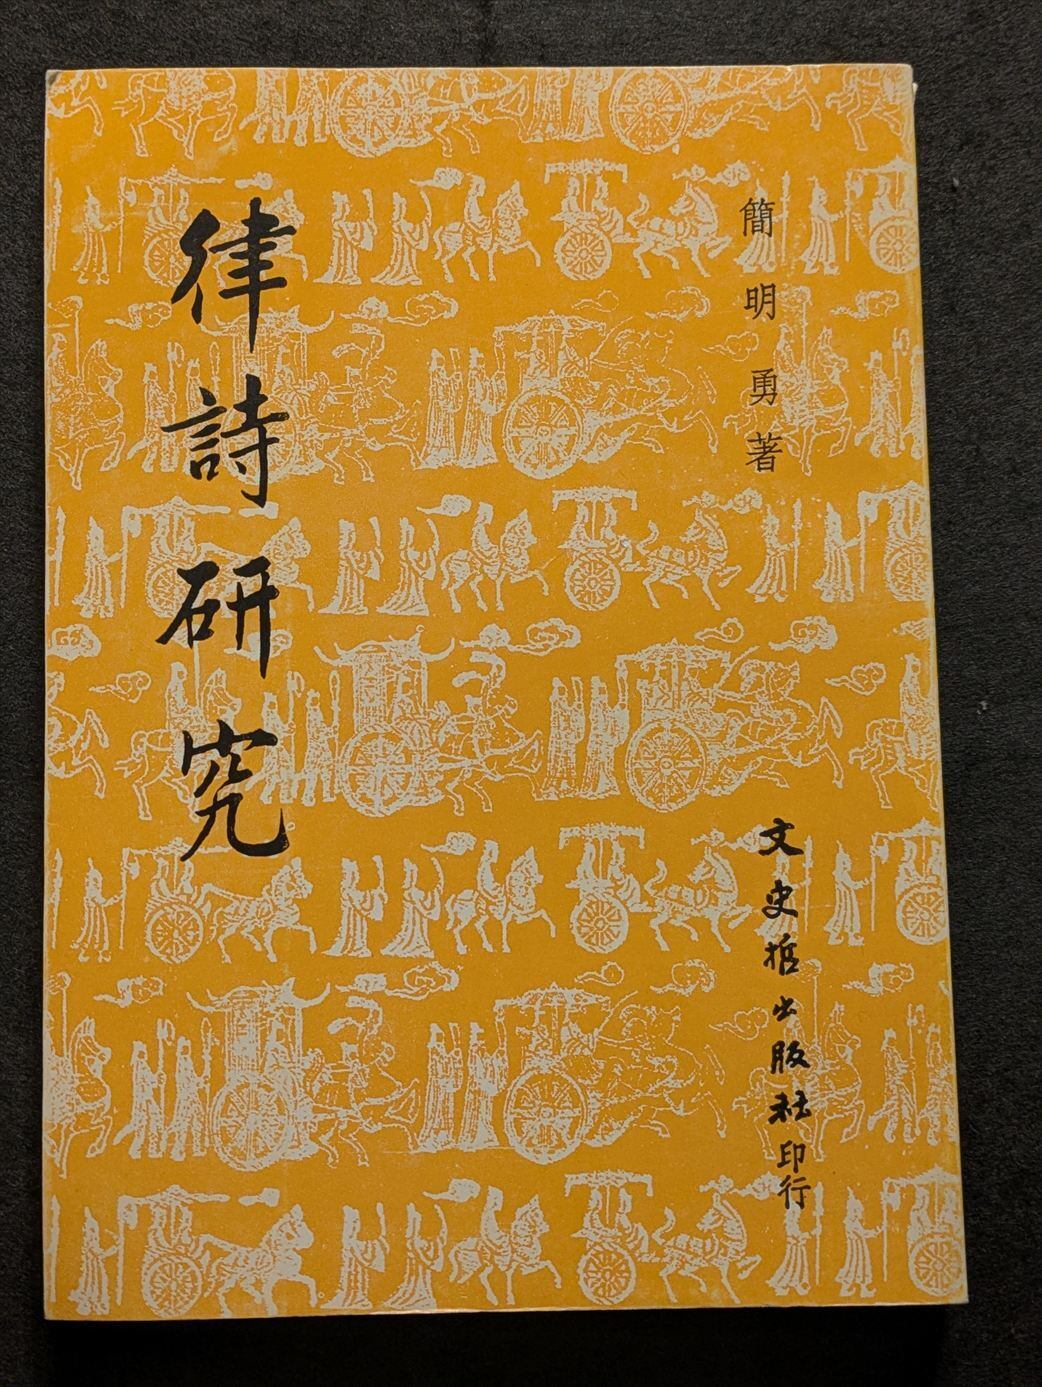 簡明勇著
律詩研究
文史哲出版社印行